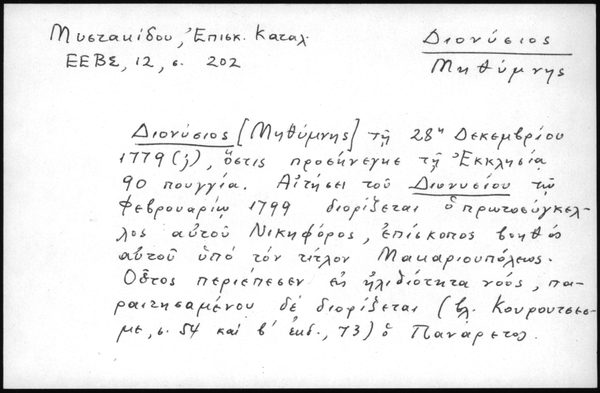 Μυστακίδου, Ἐπισκ. Καταλ.
ΕΕΒΣ, 12, σ. 202
Διονύσιος
Μηθύμνης
Διονύσιος [Μηθύμνης] τῇ 28ῃ Δεκεμβρίου
1779 (;), ὅστις προσήνεγκε τῇ Ἐκκλησίᾳ
90 πουγγία. Αἰτήσει τοῦ Διονυσίου τῷ
Φεβρουαρίῳ 1799 διορίζεται ὁ πρωτοσύγκελ-
λος αὐτοῦ Νικηφόρος, ἐπίσκοπος βοηθός
αὐτοῦ ὑπό τόν τίτλον Μακαριουπόλεως.
Οὗτος περιέπεσεν εἰς ἠλιθιότητα νοός, πα-
ραιτησαμένου δέ διορίζεται (βλ. Κουρουτσεσ-
με, σ. 54 καί β' ἐκδ., 73) ὁ Πανάρετος.